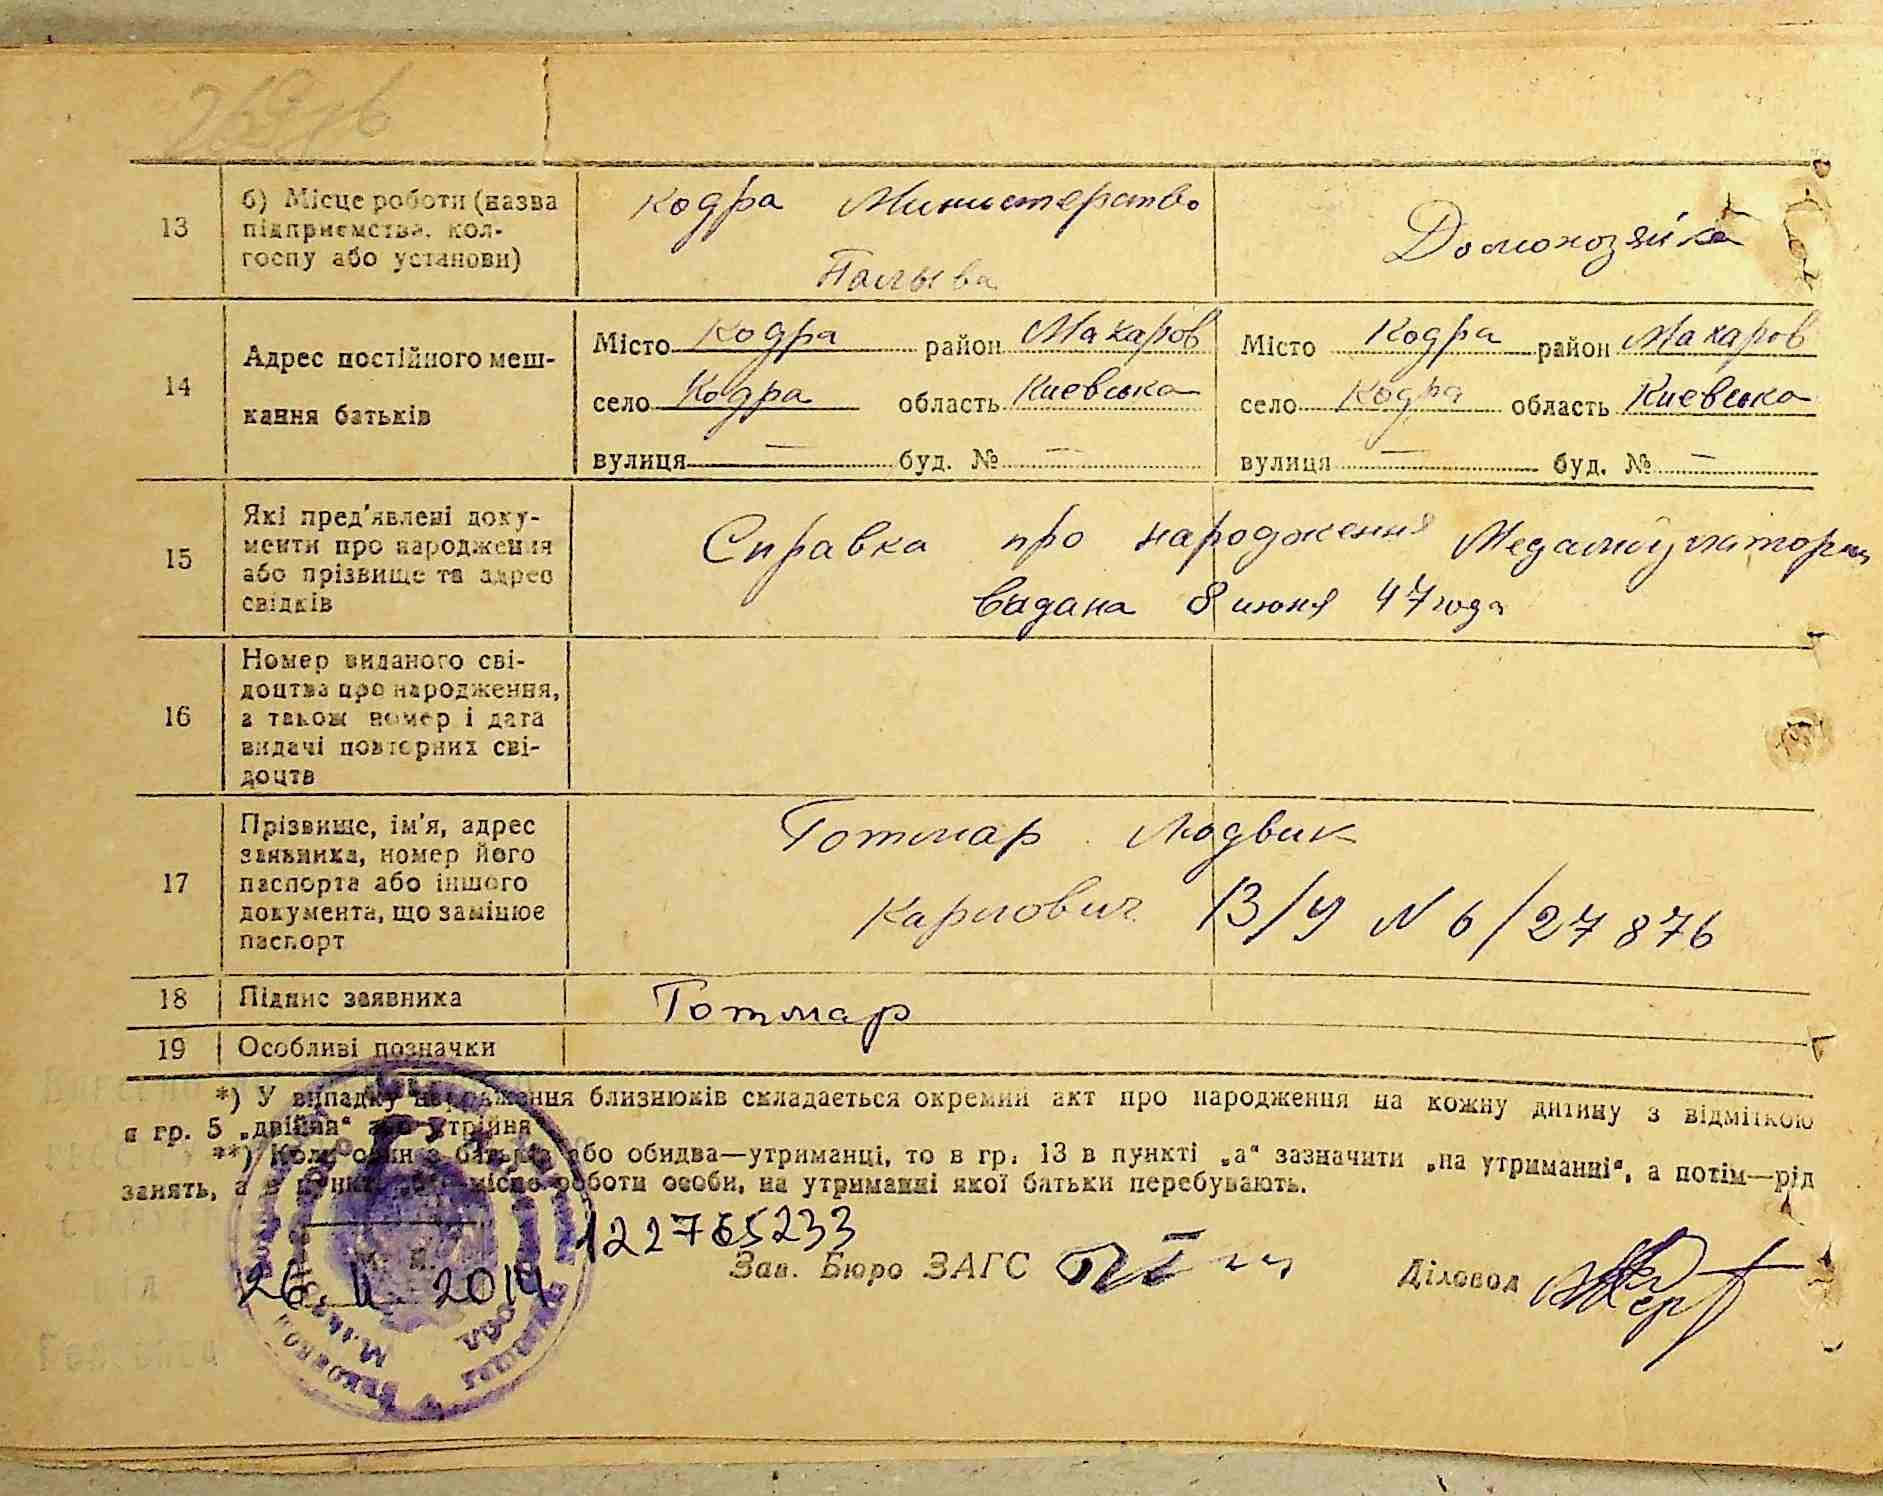 13
б) Місце роботи (назва підприємства, колгоспу або установи)
Кодра Министерство
Палыва
Домохозяйка
14
Адрес постійного мешкання батьків
Місто Кодра район Макаров
село Кодра область Киевська
вулиця — буд. № —
Місто Кодра район Макаров
село Кодра область Киевська
вулиця — буд. № —
15
Які пред'явлені документи про народження або прізвище та адрес свідків
Справка про народження
выдана 8 июня 47 года
16
Номер виданого свідоцтва про народження, а також номер і дата видачі повторних свідоцтв
17
Прізвище, ім'я, адрес заявника, номер його паспорта або іншого документа, що замінює паспорт
Готмар Людвик
Карлович В/у N 6/27876
18
Підпис заявника
Готмар
19
Особливі позначки
*) У випадку народження близнюків складається окремий акт про народження на кожну дитину з відміткою
в гр. 5 „двійня“ або „трійня
**) Коли один з батьків або обидва—утриманці, то в гр. 13 в пункті „а“ зазначити „на утриманні“, а потім—рід
занять, а в пункті „б“ місце роботи особи, на утриманні якої батьки перебувають.
122765233
М. П.
26. 11. 2014
Зав. Бюро ЗАГС
Діловод